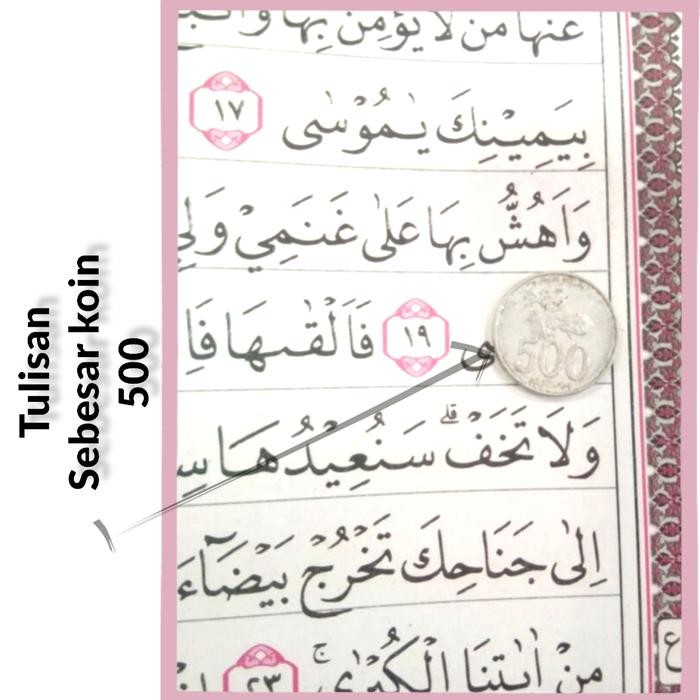 Tulisan
Sebesar koin
500
عنها من لا يؤمن بها
بِيَمِيْنِكَ يٰمُوْسٰى ١٧
وَاَهُشُّ بِهَا عَلٰى غَنَمِيْ وَلِيَ
١٩ فَاَلْقٰىهَا فَاِ
500
وَلَا تَخَفْ ۗ سَنُعِيْدُهَا سِ
اِلٰى جَنَاحِكَ تَخْرُجْ بَيْضَاۤءَ
مِنْ اٰيٰتِنَا الْكُبْرٰى ۚ ٢٣
ع